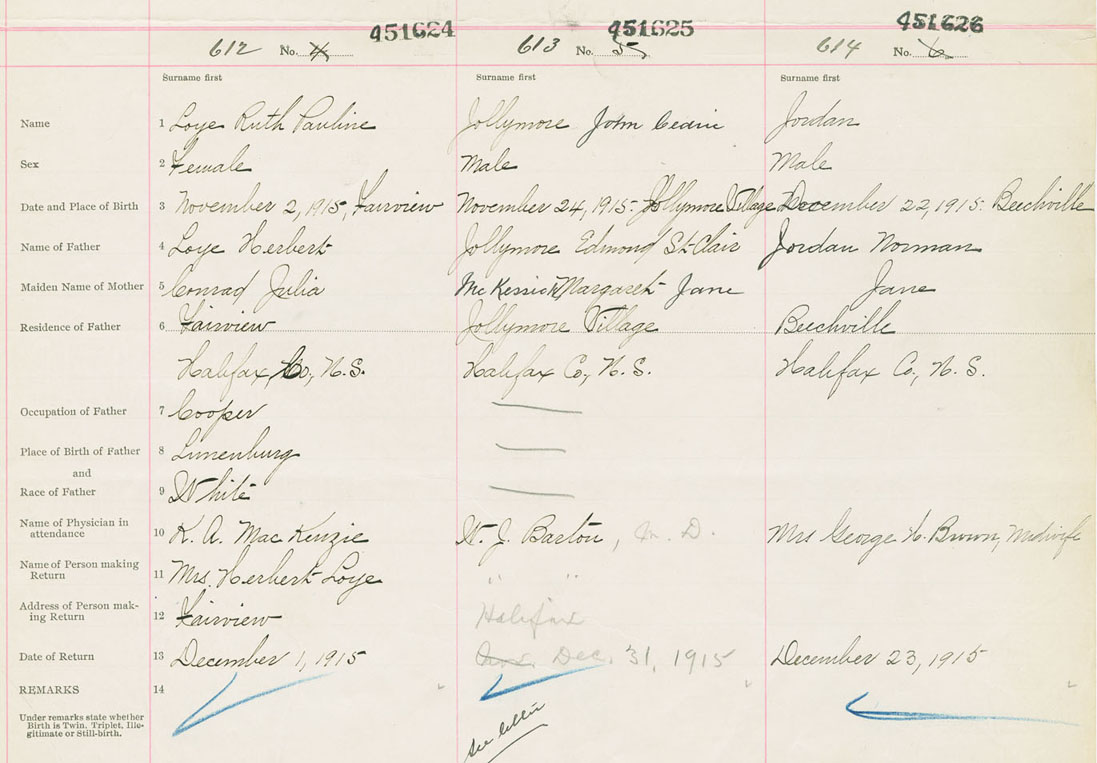 451624 451625 451626
612 No. 4 613 No. 5 614 No. 6
Surname first Surname first Surname first
Name 1 Loye Ruth Pauline Jollymore John Cedric Jordan
Sex 2 Female Male Male
Date and Place of Birth 3 November 2, 1915, Fairview November 24, 1915. Jollymore Village December 22, 1915. Beechville
Name of Father 4 Loye Herbert Jollymore Edmond St. Clair Jordan Norman
Maiden Name of Mother 5 Conrad Julia Margaret Jane Jane
Residence of Father 6 Fairview Jollymore Village Beechville
Halifax Co., N.S. Halifax Co., N.S. Halifax Co., N.S.
Occupation of Father 7 Cooper
Place of Birth of Father 8 Lunenburg
and
Race of Father 9 White
Name of Physician in
attendance 10 K. A. MacKenzie W. J. Barton, M.D. Mrs George H. Brown, Midwife
Name of Person making
Return 11 Mrs. Herbert Loye " "
Address of Person mak-
ing Return 12 Fairview Halifax
Date of Return 13 December 1, 1915 Dec. 31, 1915 December 23, 1915
REMARKS 14
Under remarks state whether
Birth is Twin, Triplet, Ille-
gitimate or Still-birth.
see